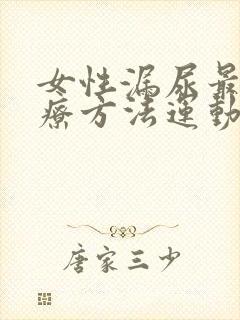 女性漏尿最
療方法運動
唐家三少